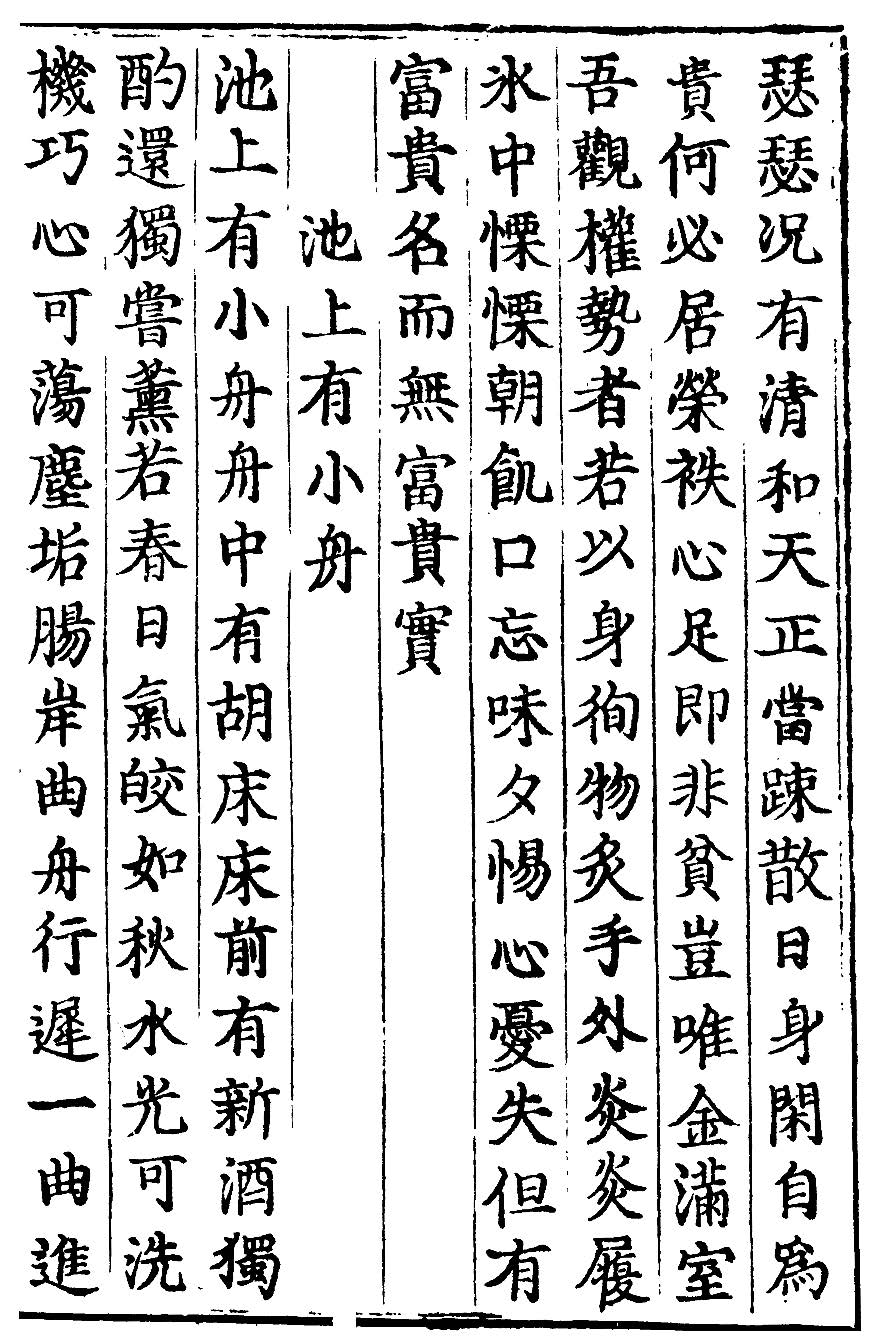 瑟瑟况有清和天正當踈散日身閑自爲
貴何必居榮袟心足即非貧豈唯金滿室
吾觀權勢者若以身徇物炙手外炎炎履
氷中慄慄朝飢口忘味夕惕心憂失但有
富貴名而無富貴實
池上有小舟
池上有小舟舟中有胡床床前有新酒獨
酌還獨嘗薰若春日氣皎如秋水光可洗
機巧心可蕩塵垢腸岸曲舟行遲一曲進